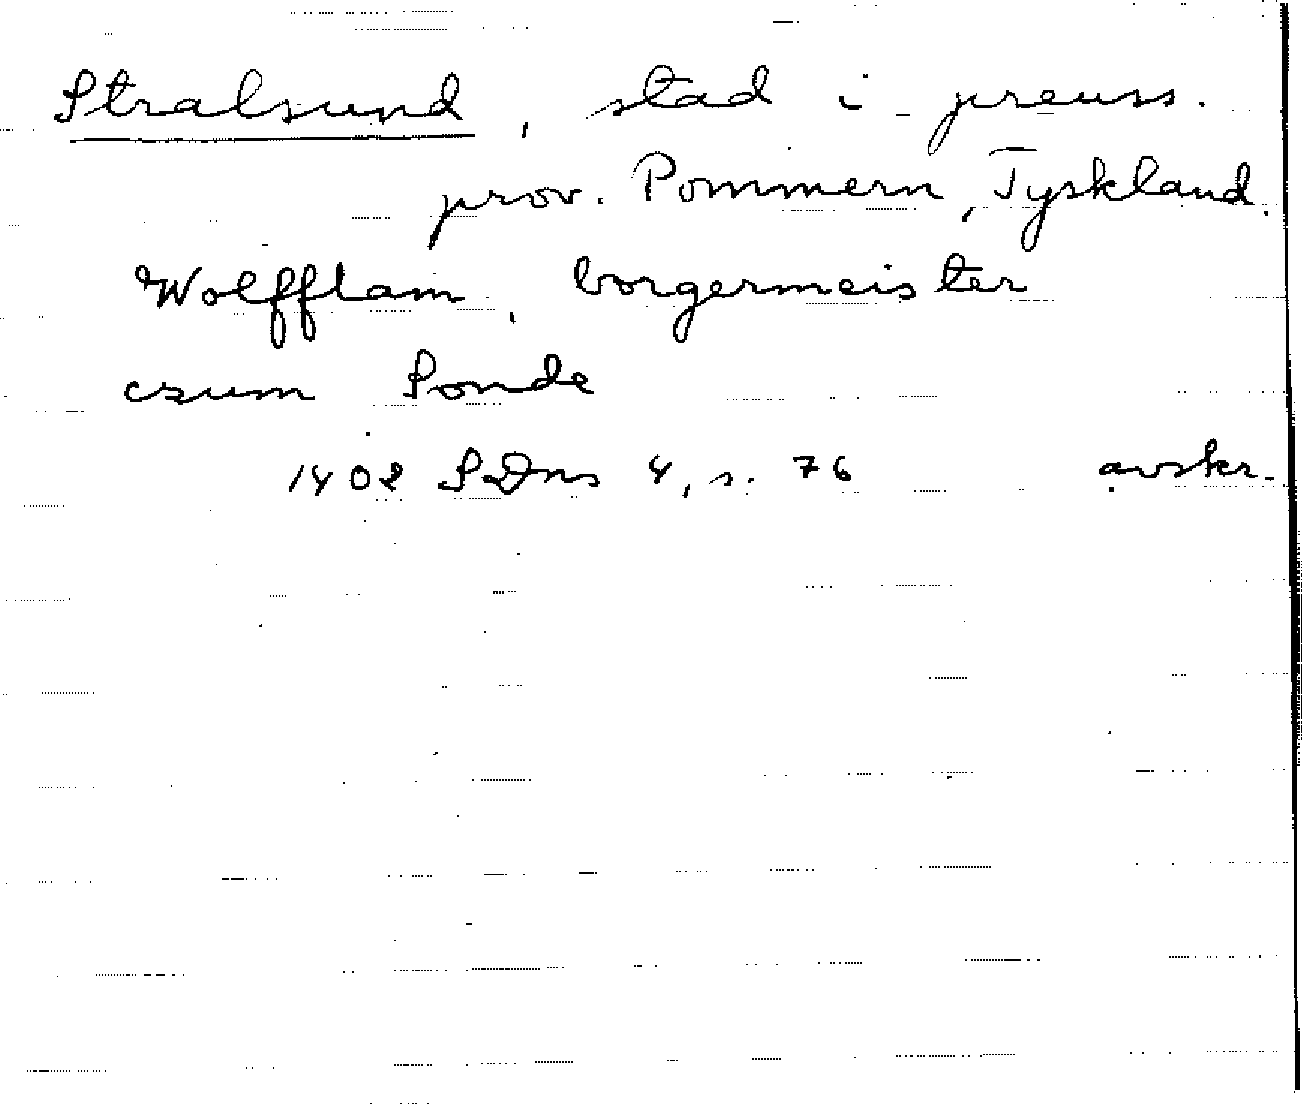 Stralsund, stad i preuss.
prov. Pommern, Tyskland.
Wolfflam, borgermeister
czum Sonde
1402 SDns 4, s. 76 avskr.